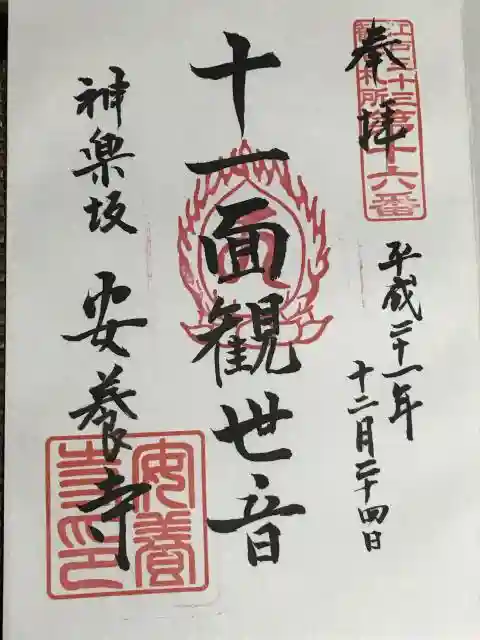 奉拝
江戸三十三
観音札所
第十六番
平成二十一年
十二月二十四日
十一面観世音
神楽坂
安養寺
安養
寺印